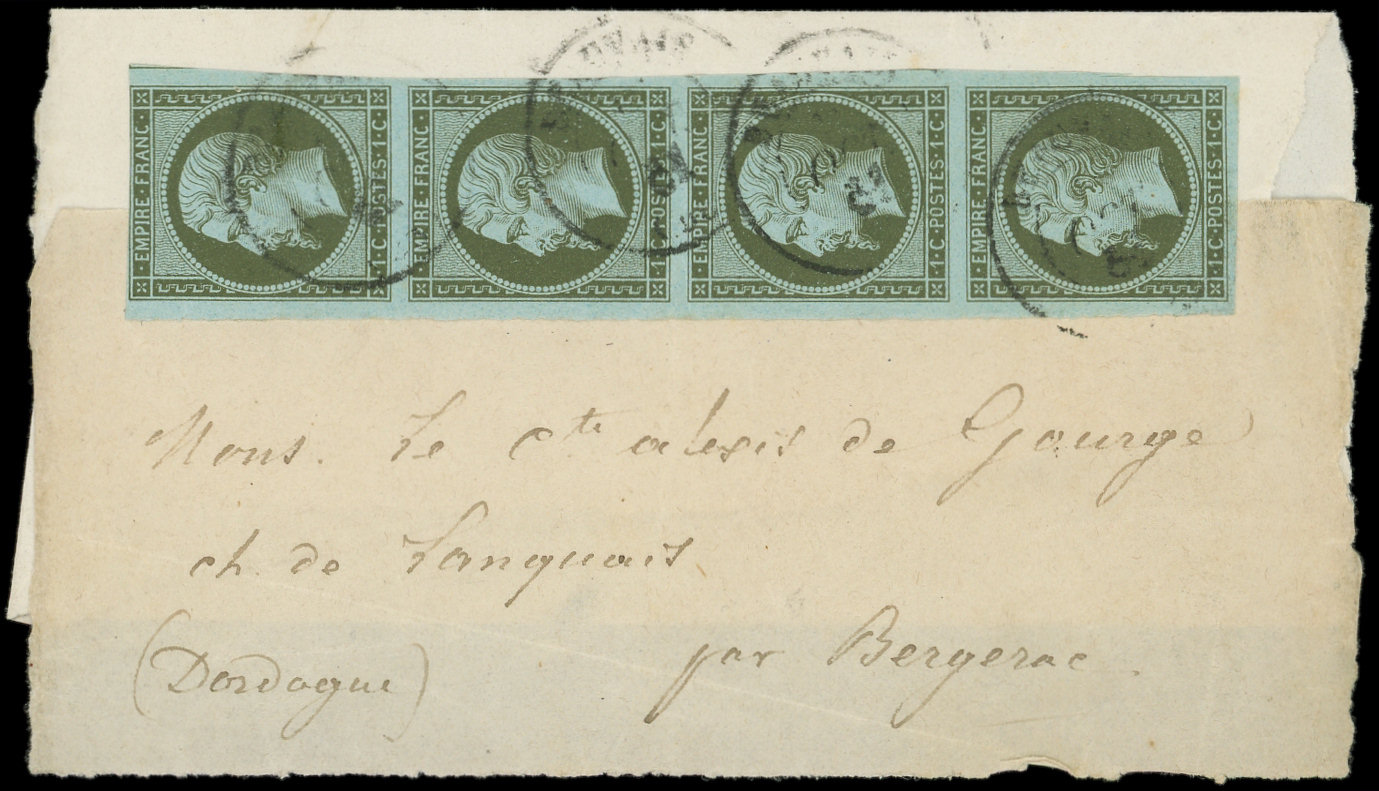 EMPIRE·FRANC· 1·C·POSTES·1·C·
EMPIRE·FRANC· 1·C·POSTES·1·C·
EMPIRE·FRANC· 1·C·POSTES·1·C·
EMPIRE·FRANC· 1·C·POSTES·1·C·
Mons. Le Cte alexis de Gourge
ch. de Lanquais
par Bergerac
(Dordogne)